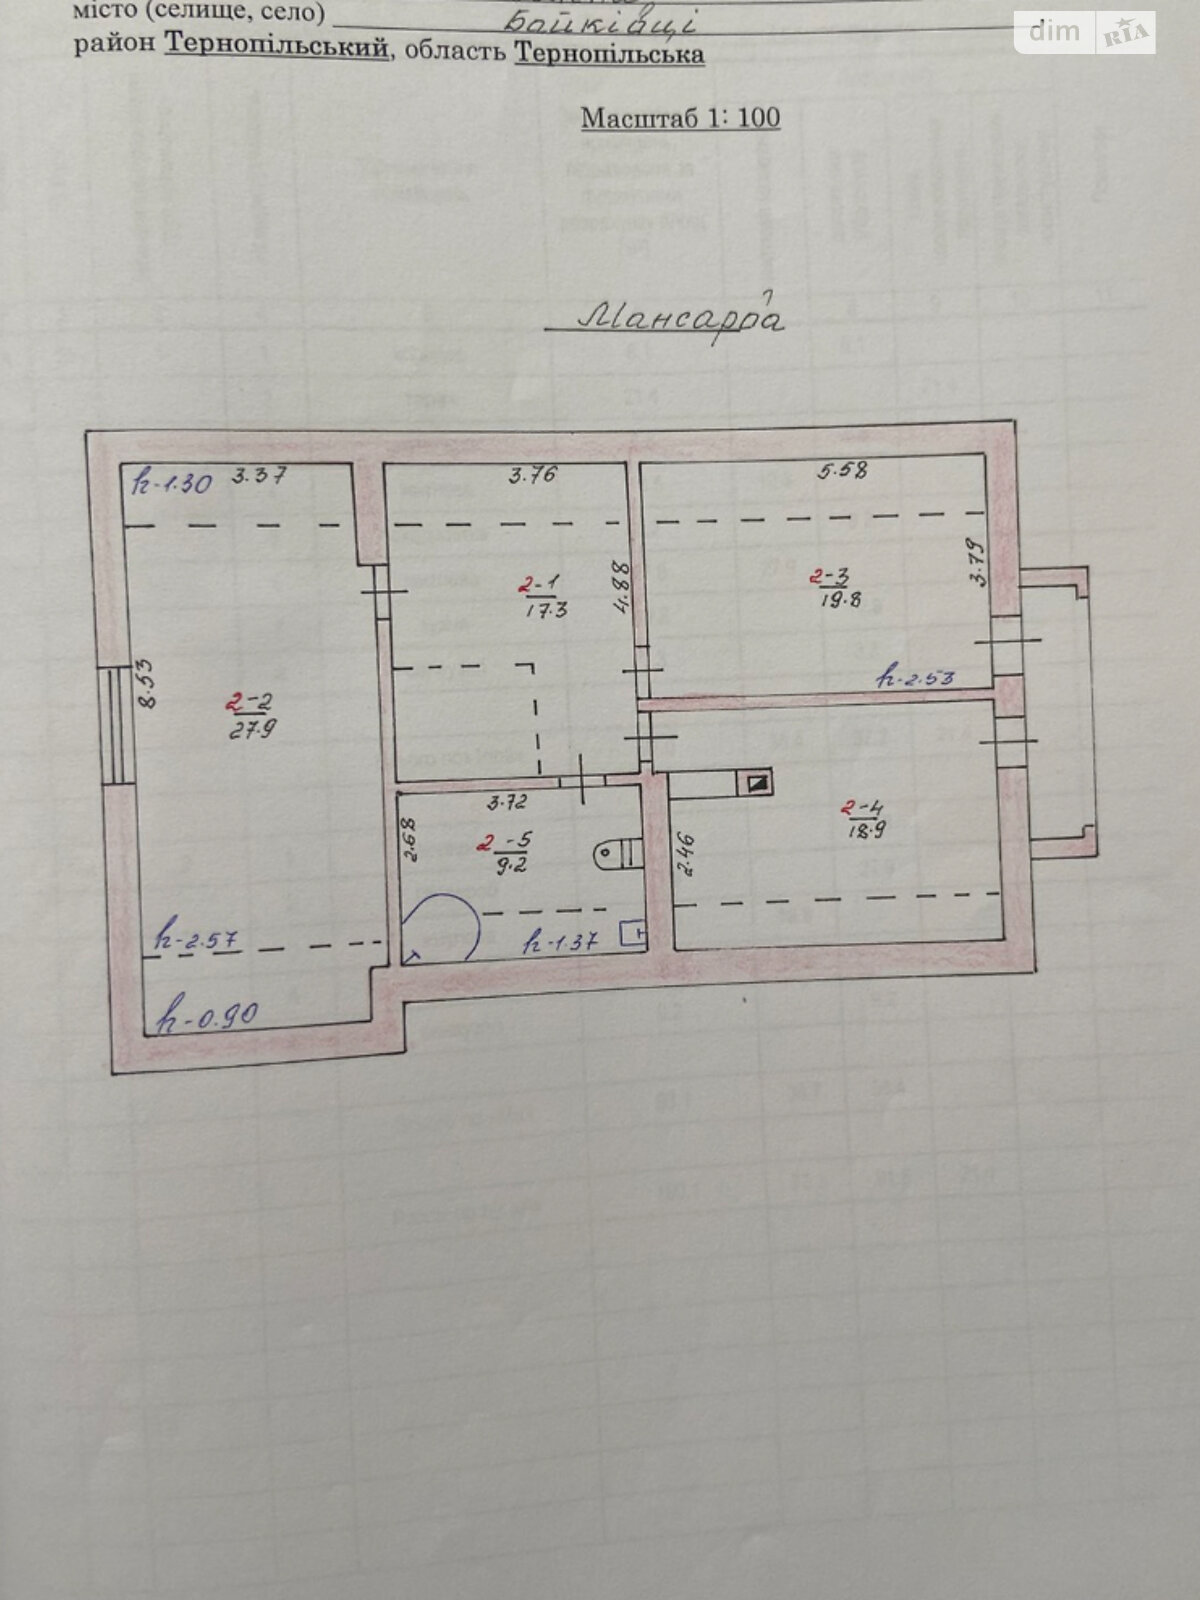 місто (селище, село) Байківці
район Тернопільський, область Тернопільська
dim RIA
Масштаб 1: 100
Мансарда
h-1.30 3.37
3.76
5.58
2-1
17.3
4.88
2-3
19.8
3.79
h-2.53
8.53
2-2
27.9
3.72
2.68
2-5
9.2
2.46
2-4
18.9
h-2.57
h-1.37
h-0.90